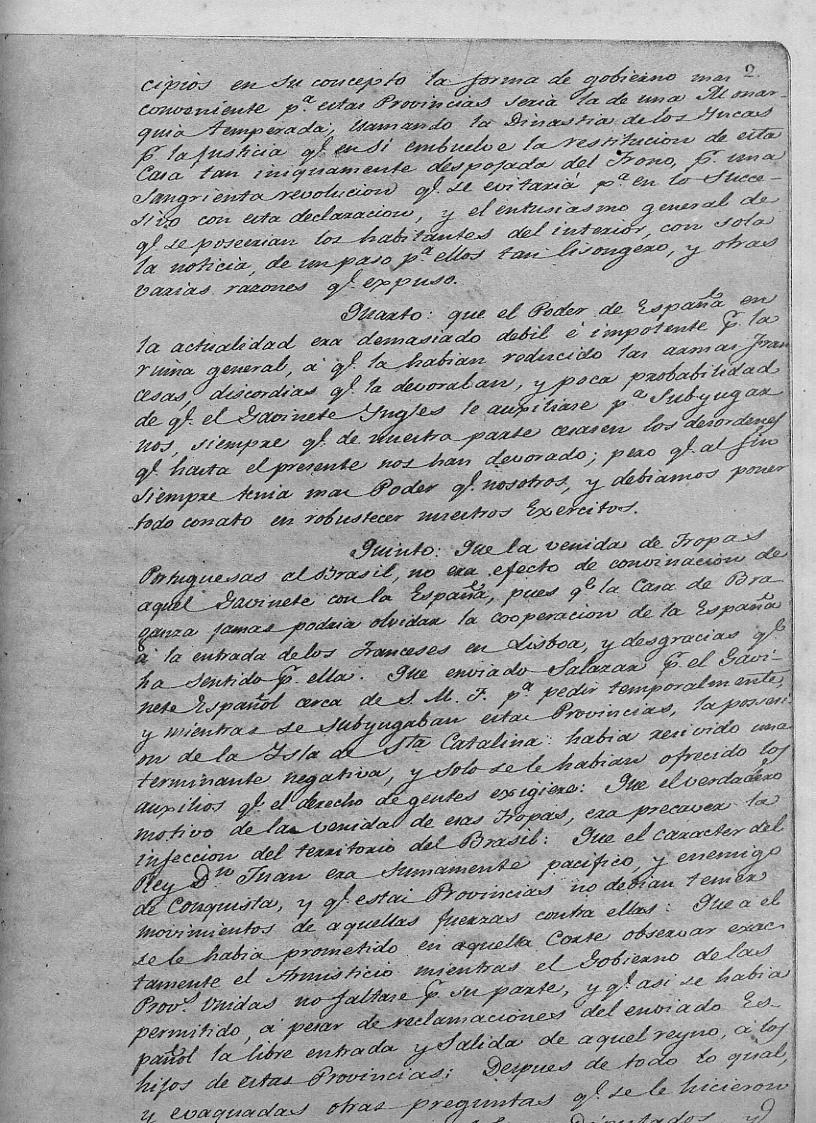 2
cipios en su concepto la forma de gobierno mas
conveniente pª estas Provincias seria la de una Monar-
quia temperada; llamando la Dinastia de los Yncas
p.r la justicia q.e en si embuelve la restitucion de esta
Casa tan iniquamente despojada del Trono, p.r una
sangrienta revolucion q.e se evitaria pª en lo succe-
sivo con esta declaracion, y el entusiasmo general de
q.e se poseerian los habitantes del interior, con sola
la noticia, de un paso pª ellos tan lisongero, y otras
varias razones q.e expuso.
Quarto: que el Poder de España en
la actualidad era demasiado debil é impotente p.r la
ruina general, á q.e la habian reducido las armas Fran
cesas, discordias q.e la devoraban, y poca probabilidad
de q.e el Gavinete Yngles le auxiliase pª subyugar
nos, siempre q.e de nuestra parte cesasen los desordenes
q.e hasta el presente nos han devorado; pero q.e al fin
siempre tenia mas Poder q.e nosotros, y debiamos poner
todo conato en robustecer nuestros Exercitos.
Quinto: Que la venida de Tropas
Portuguesas al Brasil, no era efecto de convinacion de
aquel Gavinete con la España, pues q.e la Casa de Bra
ganza jamas podria olvidar la cooperacion de la España
á la entrada de los Franceses en Lisboa, y desgracias q.e
ha sentido p.r ella. Que enviado Salazar p.r el Gavi-
nete Español cerca de S. M. F. pª pedir temporalmente,
y mientras se subyugaban estas Provincias, la posesi
on de la Ysla de Sta Catalina: habia recivido una
terminante negativa, y solo se le habian ofrecido los
auxilios q.e el derecho de gentes exigiere: Que el verdadero
motivo de la venida de esas Tropas, era precaver la
infeccion del territorio del Brasil: Que el caracter del
Rey D.n Juan era sumamente pacifico, y enemigo
de Conquista, y q.e estas Provincias no debian temer
movimientos de aquellas fuerzas contra ellas: Que a el
se le habia prometido en aquella Corte observar exac-
tamente el Armisticio mientras el Gobierno de las
Prov.s Unidas no faltase p.r su parte, y q.e asi se habia
permitido, á pesar de reclamaciones del enviado Es-
pañol la libre entrada y salida de aquel reyno, a los
hijos de estas Provincias; Despues de todo lo qual,
y evaquadas otras preguntas q.e se le hicieron
Diputados